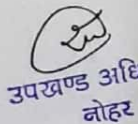 उपखण्ड अधि
नोहर